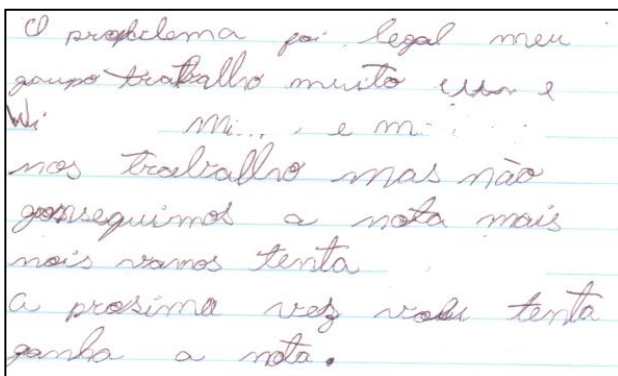 O problema foi legal meu
grupo trabalho muito eu e
e
nos trabalho mas não
conseguimos a nota mais
nois vamos tenta
a prosima vez vou tenta
ganha a nota.